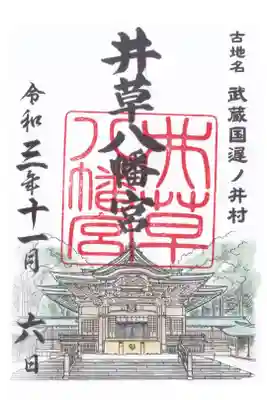 古地名 武蔵国遅ノ井村
井草八幡宮
井草
八幡宮
令和三年十一月六日